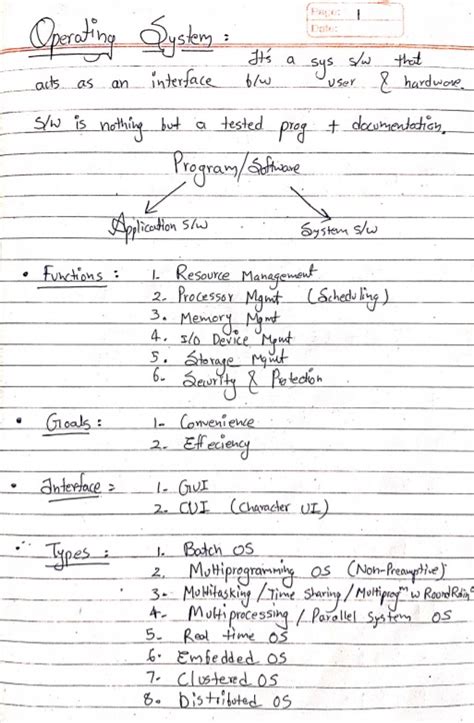 Page: 1
Date:
Operating System :
It's a sys s/w that
acts as an interface b/w user & hardware.
S/w is nothing but a tested prog + documentation.
Program/Software
Application s/w System s/w
• Functions : 1. Resource Management
2. Processor Mgmt (Scheduling)
3. Memory Mgmt
4. I/O Device Mgmt
5. Storage Mgmt
6. Security & Protection
• Goals : 1. Convenience
2. Effeciency
• Interface = 1. GUI
2. CUI (Character UI)
• Types : 1. Batch OS
2. Multiprogramming OS (Non-Preamptive)
3. Multitasking / Time Sharing / Multiprogᵐ w RoundRobin
4. Multiprocessing / Parallel System OS
5. Real time OS
6. Embedded OS
7. Clustered OS
8. Distributed OS